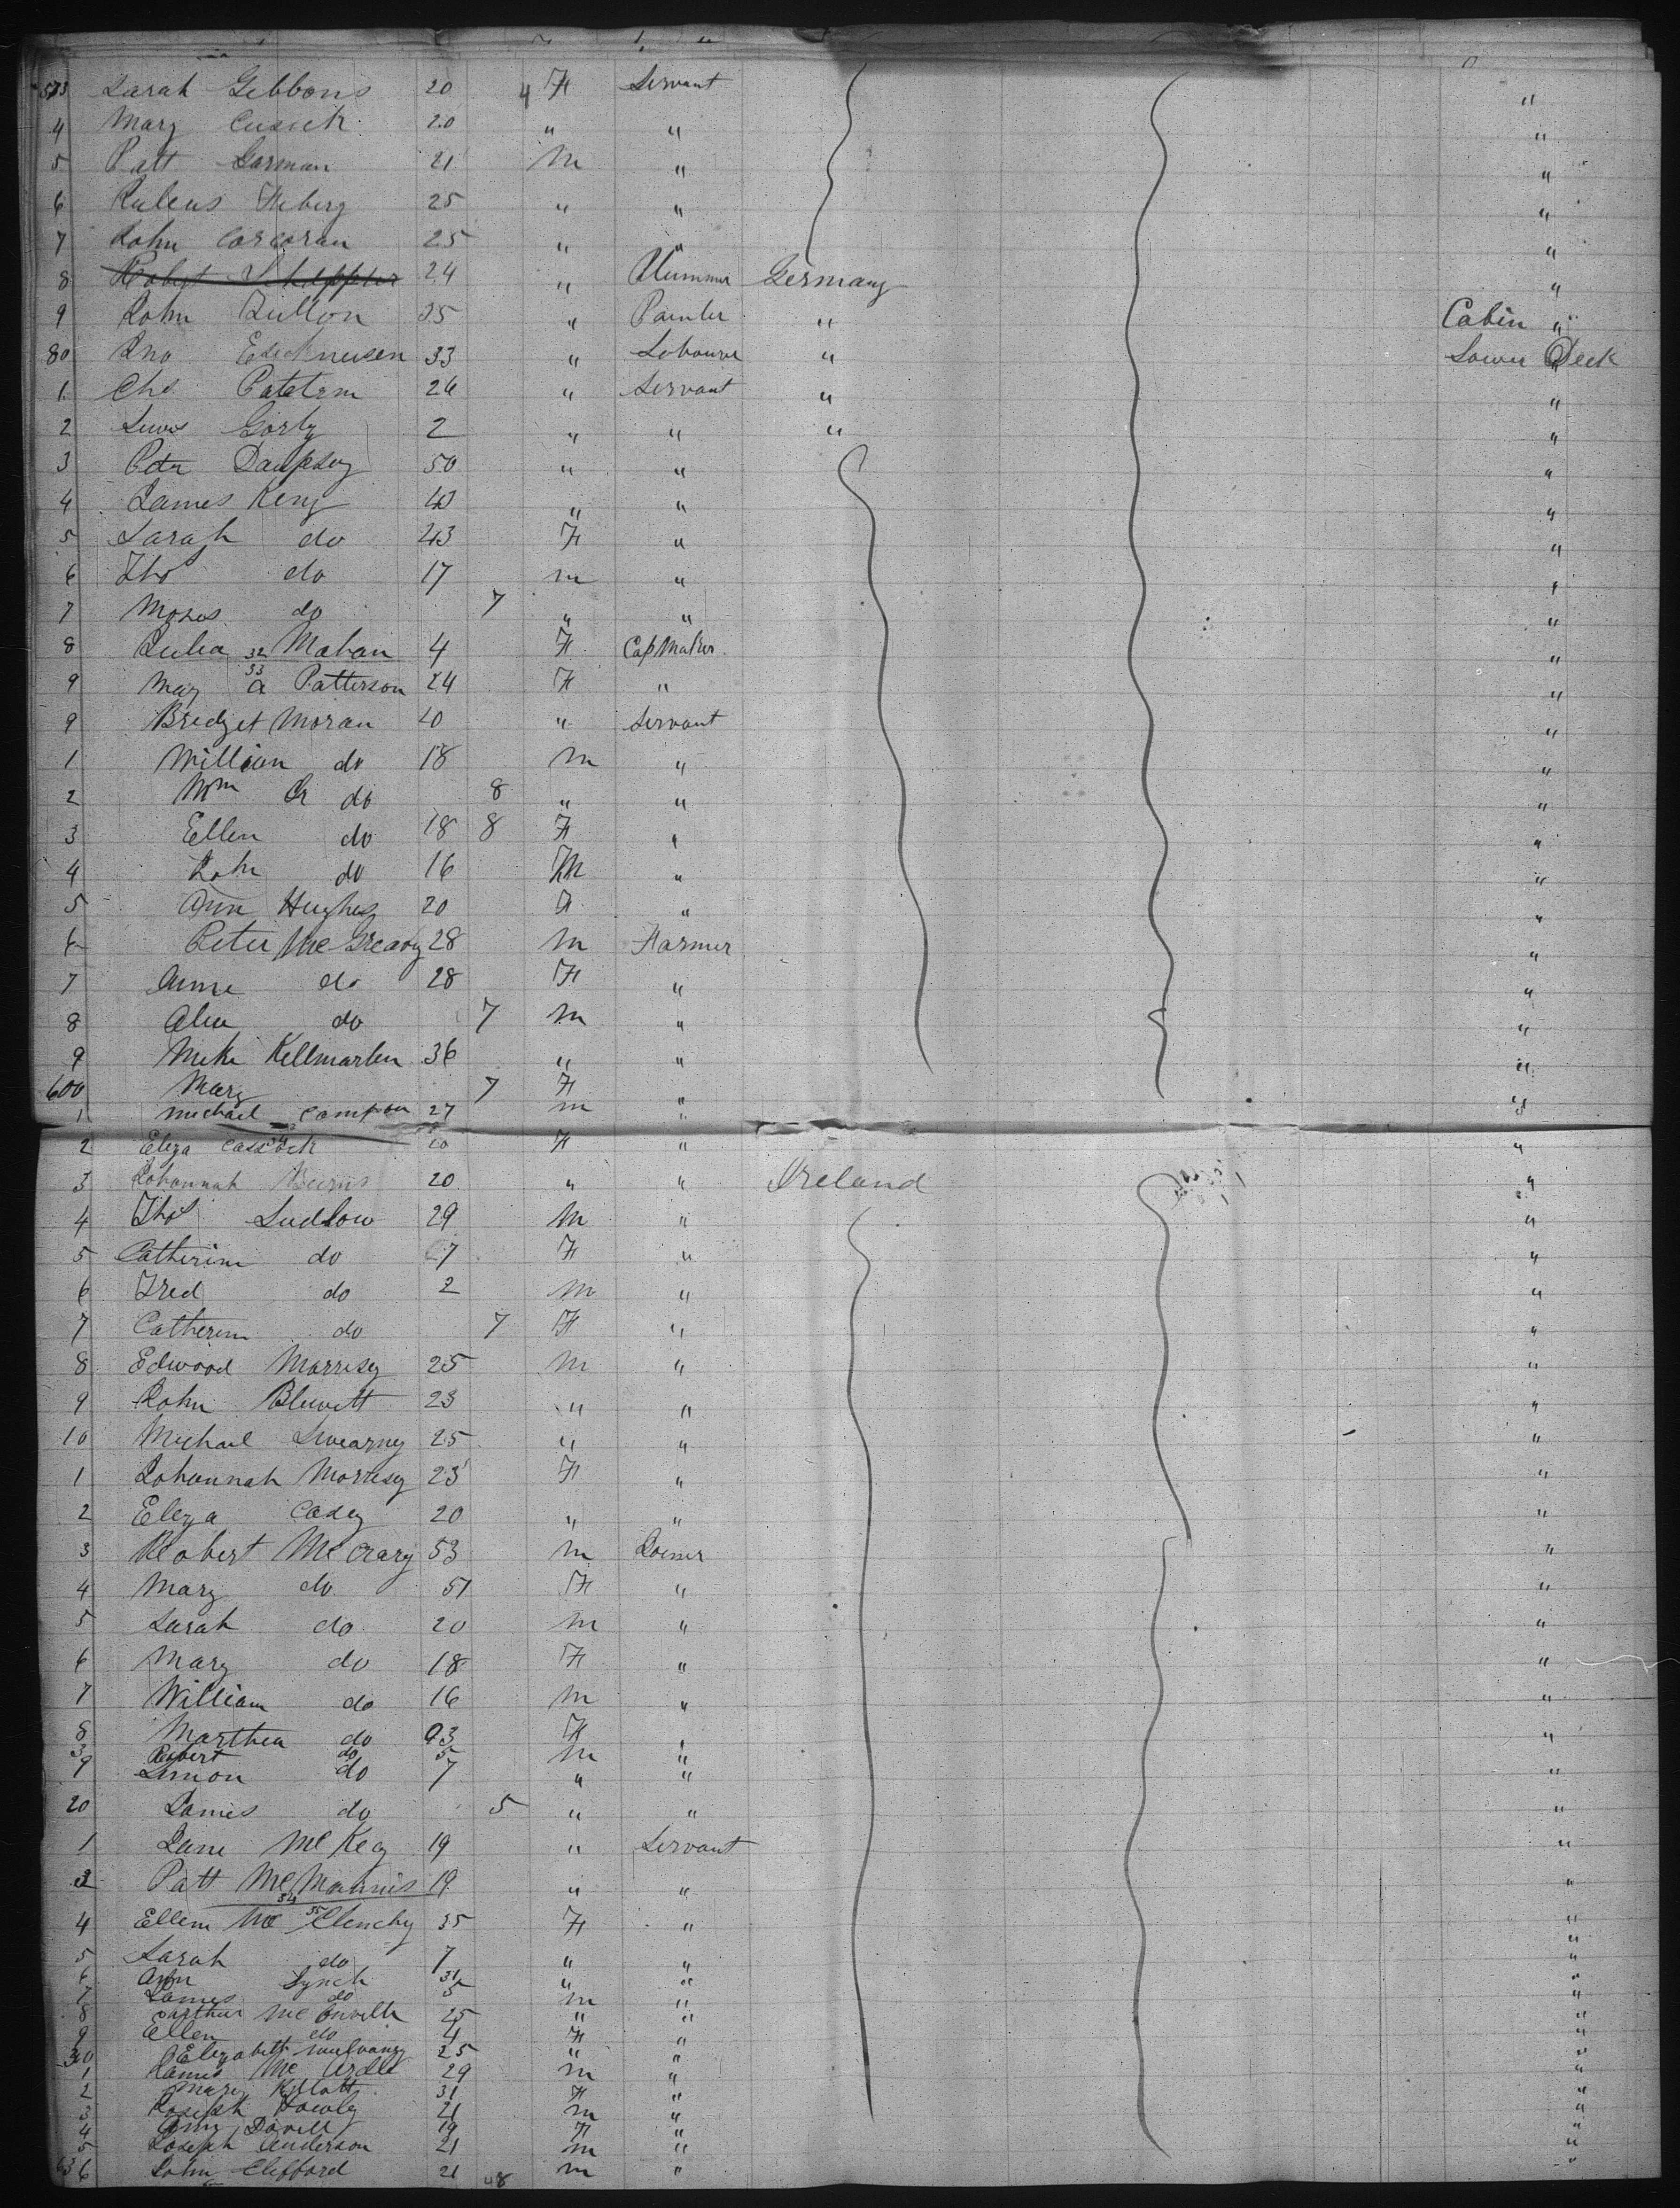 573 Sarah Gibbons 20 4 F Servant "
4 Mary Cusick 20 " " "
5 Patt Gorman 21 M " "
6 25 " " "
7 John Corcoran 25 " " "
8 Robert 24 " Germany "
9 John " Painter " Cabin "
80 Jno 33 " " Lower Deck
1 Chs 26 " Servant " "
2 Lewis 2 " " " "
3 Peter Dempsey 50 " " "
4 James King 40 " " "
5 Sarah do 43 F " "
6 Thos do 17 M " "
7 Moses do 7 " " "
8 Julia 32 Mahan 4 F Cap Maker "
9 Mary 33 a Patterson 24 F " "
9 Bridget Moran 40 " Servant "
1 William do 18 M " "
2 Wm do 8 " " "
3 Ellen do 18 8 F " "
4 John do 16 M " "
5 Ann Hughes 20 F " "
6 Peter McGreavy 28 M Farmer "
7 Anne do 28 F " "
8 do 7 M " "
9 Mike Kellmarten 36 " " "
600 Mary 7 F " "
1 Michael 27 M " "
2 Eliza 20 F " "
3 Johannah Burns 20 " " Ireland "
4 Thos Ludlow 29 M " "
5 Catherine do 27 F " "
6 Fred do 2 M " "
7 Catherine do 7 F " "
8 Edward Morrisey 25 M " "
9 John Bluvett 23 " " "
10 Michael Swearny 25 " " "
1 Johannah Morrisey 23 F " "
2 Eliza Casey 20 " " "
3 Robert McCrary 53 M Joiner "
4 Mary do 51 F " "
5 Sarah do 20 M " "
6 Mary do 18 F " "
7 William do 16 M " "
8 Marthea do 93 F " "
3 Robert do 5 M "
9 Simon do 7 " " "
20 James do 5 " " "
1 Jane McKey 19 " Servant "
3 Patt McMannis 19 " " "
34
4 Ellen Mc 35 Clenchy 35 F " "
5 Sarah do 7 " " "
6 Ann Lynch 31 " " "
7 James do 5 M " "
8 Arthur 25 " " "
9 Ellen do 4 F " "
30 Elizabeth Mulvany 25 " " "
1 James McArdle 29 M " "
2 Mary 31 F " "
3 Joseph 21 M " "
4 19 F " "
5 Joseph Anderson 21 M " "
636 John Clifford 21 48 M " "